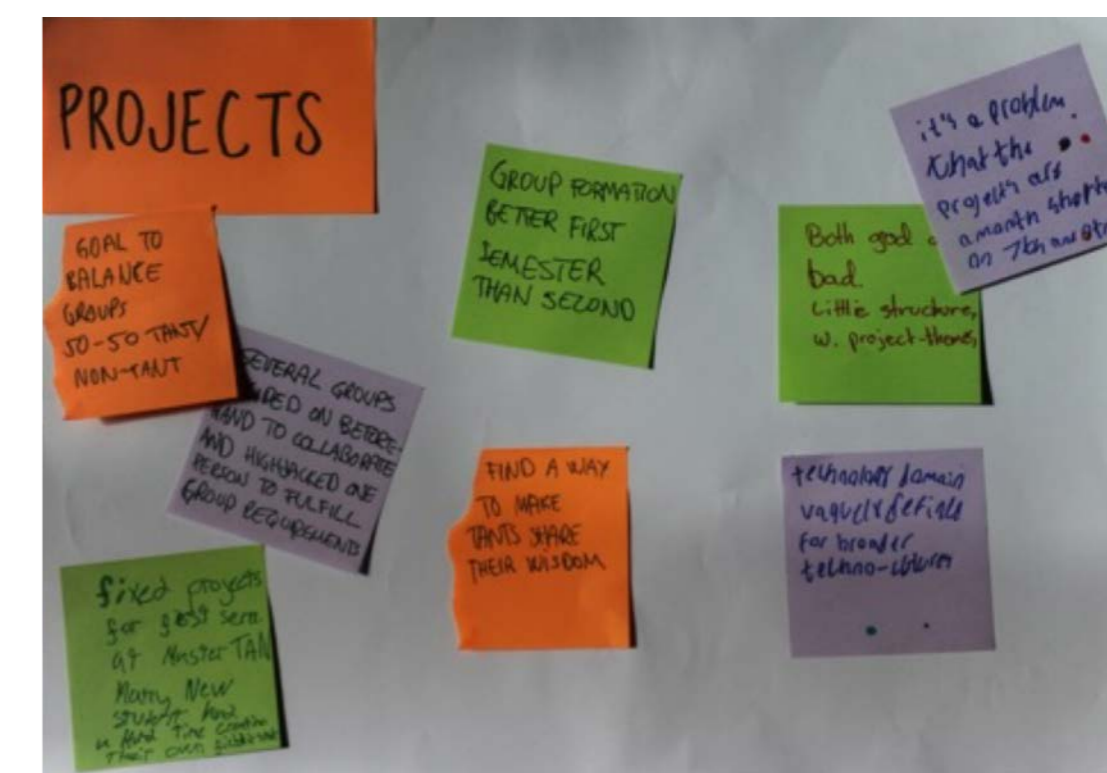 PROJECTS
GOAL TO
BALANCE
GROUPS
50-50 TANT/
NON-TANT
SEVERAL GROUPS
ON BEFORE-
HAND TO COLLABORATE
AND HIGHJACKED ONE
PERSON TO FULFILL
GROUP REQUIREMENTS
fixed projects
for first sem
at Master TAN
Many New
student have
a Hard Time creating
Their own
GROUP FORMATION
BETTER FIRST
SEMESTER
THAN SECOND
FIND A WAY
TO MAKE
TANTS SHARE
THEIR WISDOM
Both god
bad.
Little structure,
w. project-themes
it's a problem
that the
projects are
a month shorter
on 7th and
technology domain
vaguely
for broader
techno-